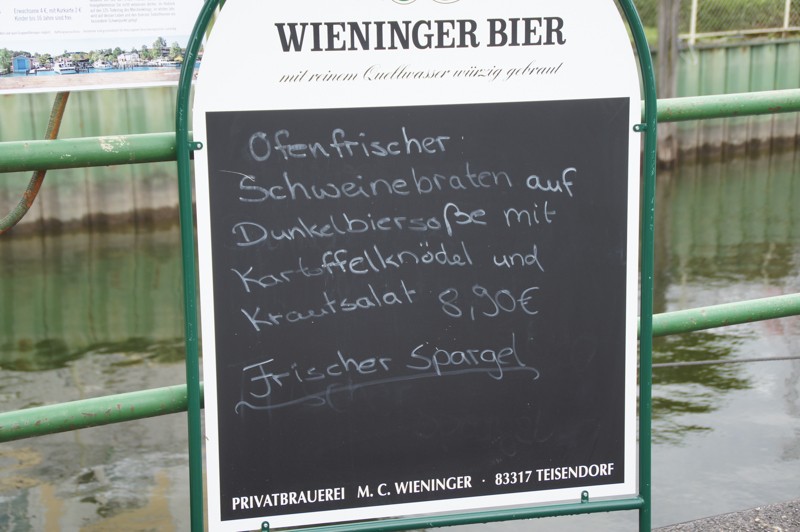 Erwachsene 4 €, mit Kurkarte 2 €
WIENINGER BIER
mit reinem Quellwasser würzig gebraut
Ofenfrischer
Schweinebraten auf
Dunkelbiersoße mit
Kartoffelknödel und
Krautsalat 8,90€
Frischer Spargel
PRIVATBRAUEREI M. C. WIENINGER · 83317 TEISENDORF